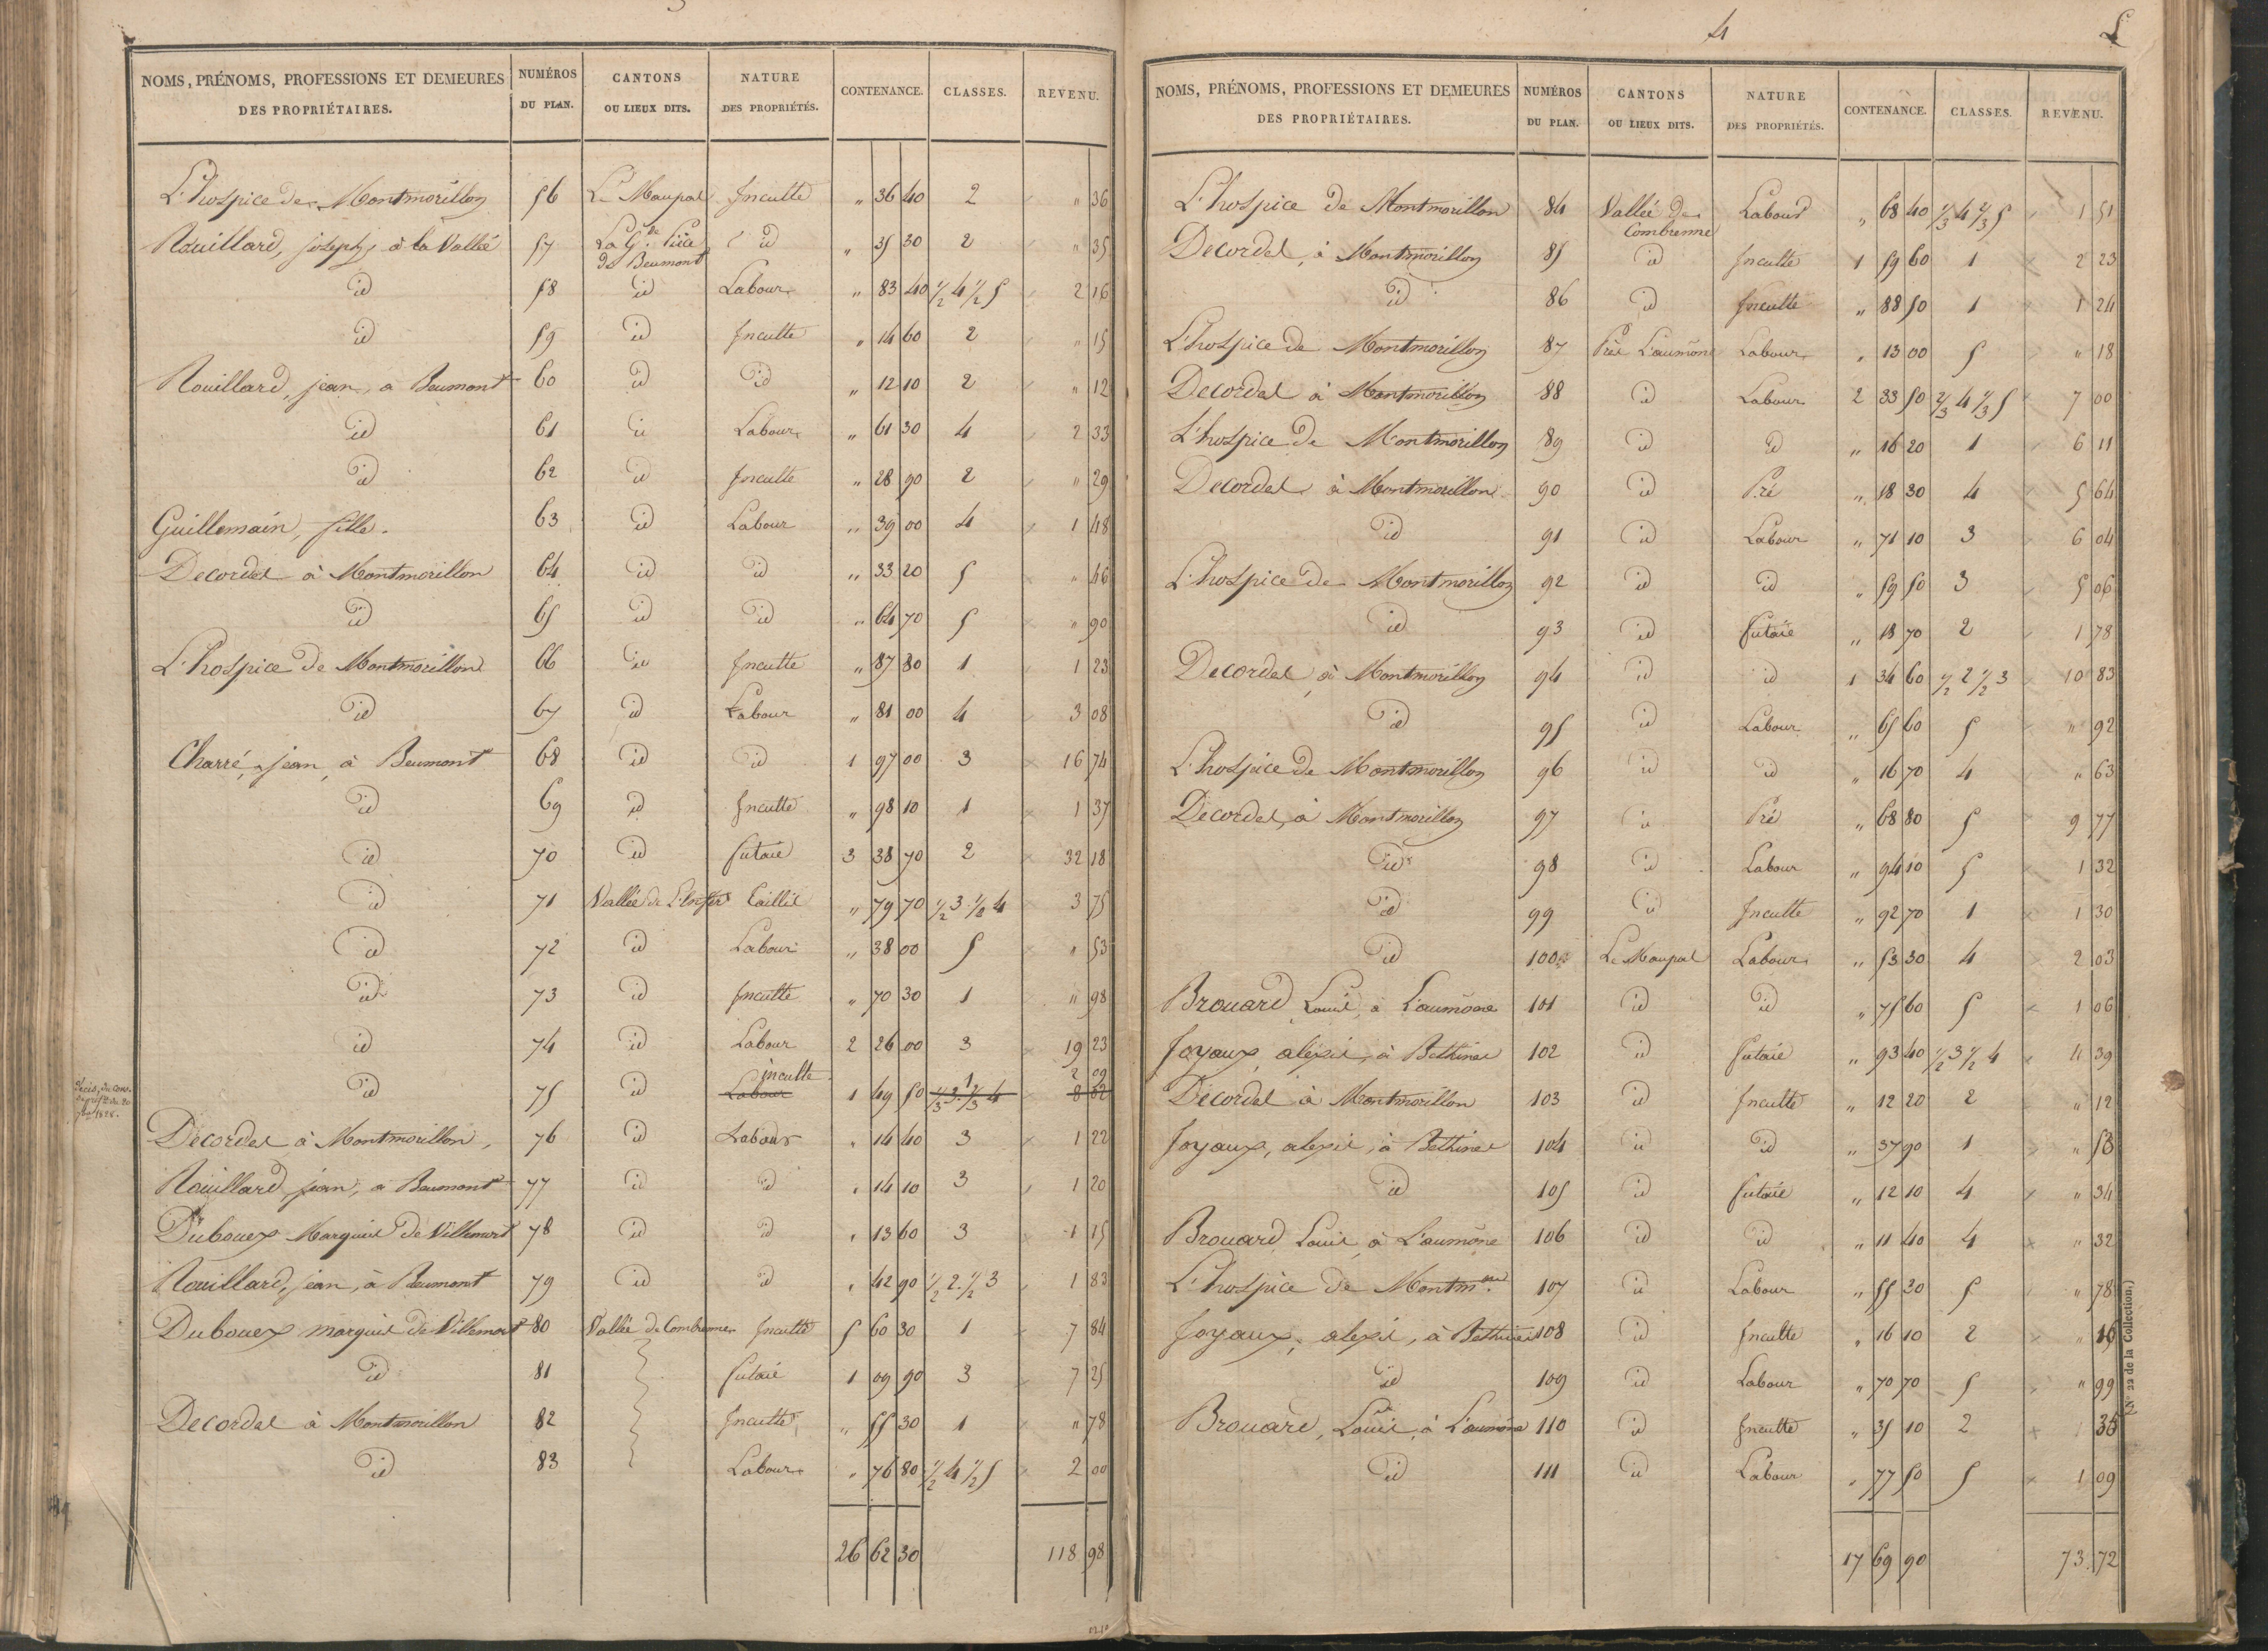 NOMS, PRÉNOMS, PROFESSIONS ET DEMEURES DES PROPRIÉTAIRES. NUMÉROS DU PLAN. CANTONS OU LIEUX DITS. NATURE DES PROPRIÉTÉS. CONTENANCE. CLASSES. REVENU.
L'hospice de Montmorillon 56 Le Maupal Inculte " 36 40 2 " 36
Rouillard, joseph, à la Vallée 57 La Gde Pièce de Beumont id " 35 30 2 " 35
id 58 id Labour " 83 40 1/2 4 1/2 5 2 16
id 59 id Inculte " 14 60 2 " 15
Rouillard, jean, a Beumont 60 id id " 12 10 2 " 12
id 61 id Labour " 61 30 4 2 33
id 62 id Inculte " 28 90 2 " 29
Guillemain, fille. 63 id Labour " 39 00 4 1 48
Decordel à Montmorillon 64 id id " 33 20 5 " 46
id 65 id id " 64 70 5 " 90
L'hospice de Montmorillon 66 id Inculte " 87 80 1 1 23
id 67 id Labour " 81 00 4 3 08
Charré, jean, à Beumont 68 id id 1 97 00 3 16 74
id 69 id Inculte " 98 10 1 1 37
id 70 id futaie 3 38 70 2 32 18
id 71 Vallée de L'Enfer Taillis " 79 70 1/2 3 1/2 4 3 75
id 72 id Labour " 38 00 5 " 53
id 73 id Inculte " 70 30 1 " 98
id 74 id Labour 2 26 00 3 19 23
inculte 1 2 09
id 75 id Labour 1 49 50 1/3 3 1/3 4 8 62
Decordel à Montmorillon, 76 id Labour " 14 40 3 1 22
Rouillard jean, à Beumont 77 id id " 14 10 3 1 20
Dubouex Marquis de Villemort 78 id id " 13 60 3 1 15
Rouillard, jean, à Beumont 79 id id " 42 90 1/2 2 1/2 3 1 83
Dubouex marquis de Villemort 80 Vallée de Combrenne Inculte 5 60 30 1 7 84
id 81 futaie 1 09 90 3 7 25
Decordel à Montmorillon 82 Inculte " 55 30 1 " 78
id 83 Labour " 76 80 1/2 4 1/2 5 2 00
26 62 30 118 98
4
NOMS, PRÉNOMS, PROFESSIONS ET DEMEURES DES PROPRIÉTAIRES. NUMÉROS DU PLAN. CANTONS OU LIEUX DITS. NATURE DES PROPRIÉTÉS. CONTENANCE. CLASSES. REVENU.
L'hospice de Montmorillon 84 Vallée de Combrenne Labour " 68 40 1/3 4 2/3 5 1 51
Decordel, à Montmorillon 85 id Inculte 1 59 60 1 2 23
id 86 id Inculte " 88 50 1 1 24
L'hospice de Montmorillon 87 Près L'aumône Labour " 13 00 5 " 18
Decordel à Montmorillon 88 id Labour 2 33 50 2/3 4 1/3 5 7 00
L'hospice de Montmorillon 89 id id " 16 20 1 6 11
Decordel à Montmorillon 90 id Pré " 18 30 4 5 64
id 91 id Labour " 71 10 3 6 04
L'hospice de Montmorillon 92 id id " 59 50 3 5 06
id 93 id futaie " 18 70 2 1 78
Decordel à Montmorillon 94 id id 1 34 60 1/2 2 1/2 3 10 83
id 95 id Labour " 65 60 5 " 92
L'hospice de Montmorillon 96 id id " 16 70 4 " 63
Decordel, à Montmorillon 97 id Pré " 68 80 5 9 77
id 98 id Labour " 94 10 5 1 32
id 99 id Inculte " 92 70 1 1 30
id 100 Le Maupal Labour " 53 30 4 2 03
Brouard, Louis, à L'aumône 101 id id " 75 60 5 1 06
Joyaux, alexis, à Bethines 102 id futaie " 93 40 1/2 3 1/2 4 4 39
Decordel à Montmorillon 103 id Inculte " 12 20 2 " 12
Joyaux, alexis, à Bethines 104 id id " 37 90 1 " 53
id 105 id futaie " 12 10 4 " 34
Brouard, Louis à L'aumône 106 id id " 11 40 4 " 32
L'hospice de Montm.on 107 id Labour " 55 30 5 " 78
Joyaux, alexis, à Bethines 108 id Inculte " 16 10 2 " 16
id 109 id Labour " 70 70 5 " 99
Brouard, Louis, à L'aumône 110 id Inculte " 35 10 2 35
id 111 id Labour " 77 50 5 1 09
17 69 90 73 72
(N° 22 de la Collection.)